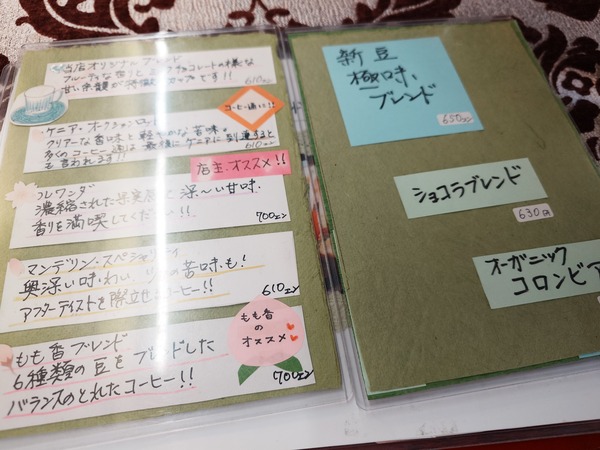 当店オリジナルブレンド
フルーティな香りとミルクチョコレートの様な
甘い余韻が特徴のカップです!!
610エン
コーヒー通に!!
ケニア・オークションロット
クリアーな香味と軽やかな苦味。
多くのコービー通は最後にケニアに到達すると
も言われます!!
610エン
店主、オススメ!!
ルワンダ
濃縮された果実感と深〜い甘味、
香りを満喫してください!!
700エン
マンデリン・スペシャリティ
奥深い味わい
の苦味も!
アフターテイストを際立
コーヒー!!
610エン
もも香
の
オススメ
もも香ブレンド
6種類の豆をブレンドした
バランスのとれたコーヒー!!
700エン
新豆
極味、
ブレンド
650エン
ショコラブレンド
630円
オーガニック
コロンビア